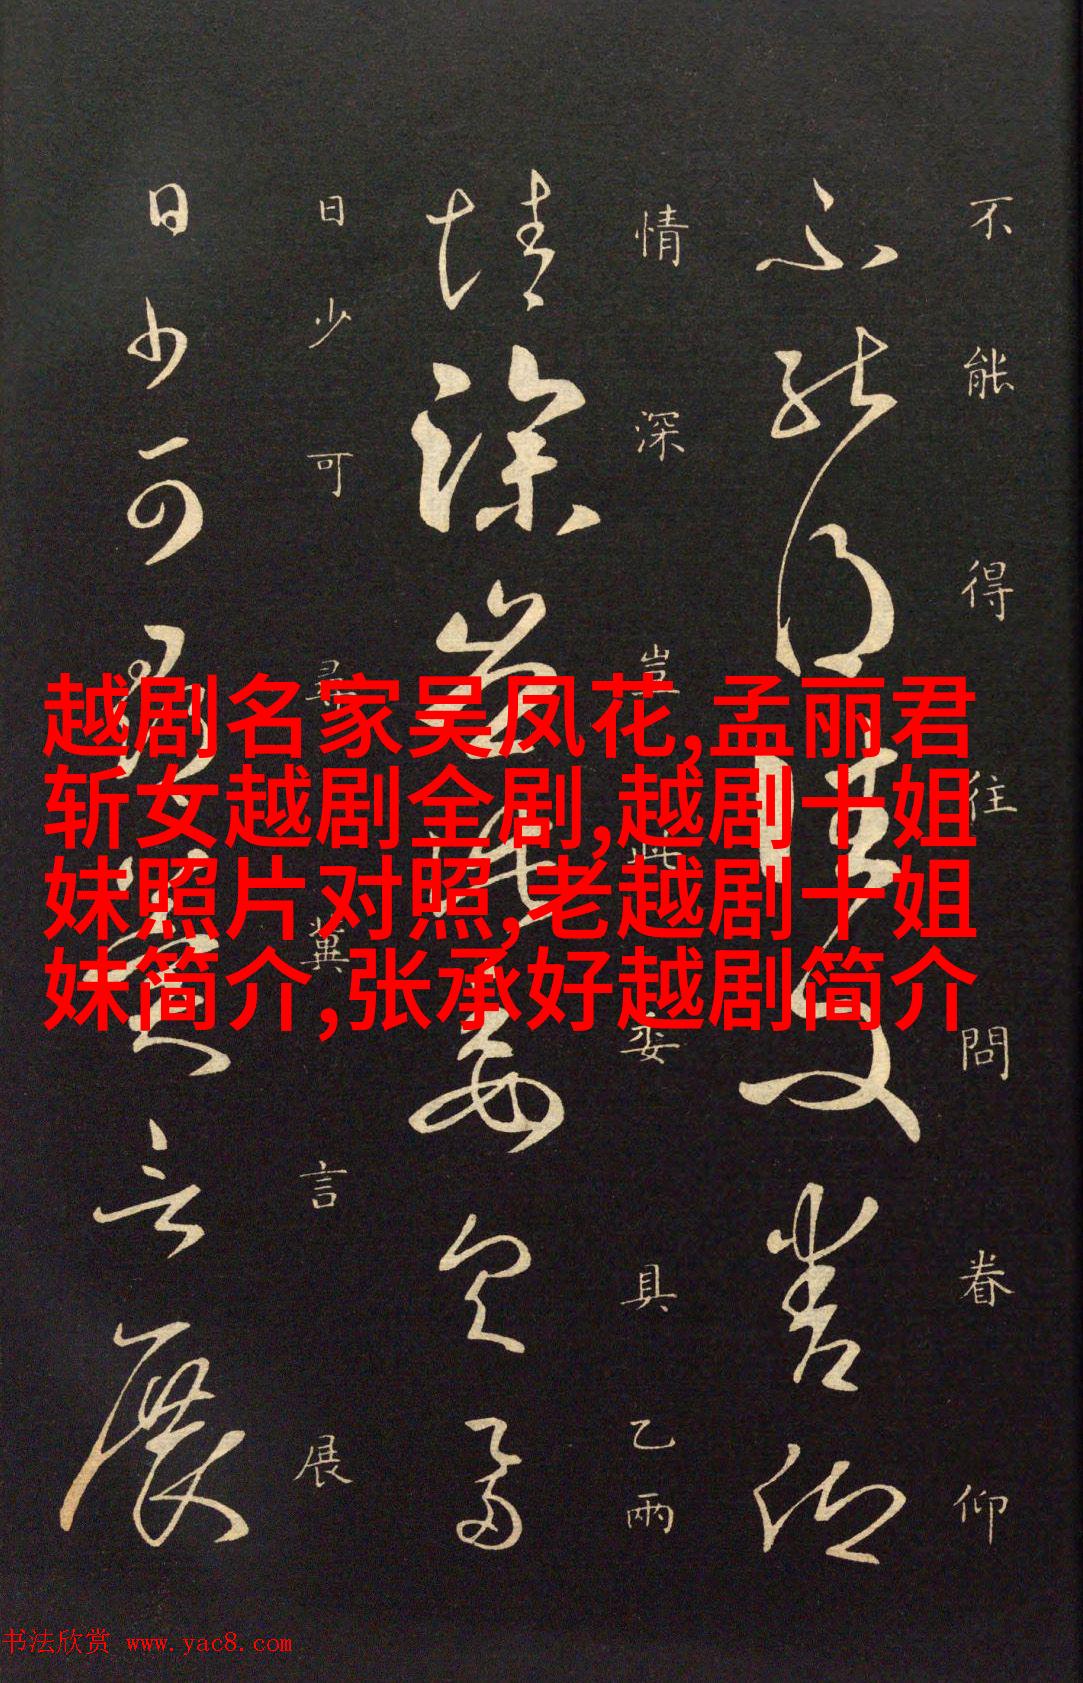 不能得往問眷仰
情深豈此委具乙兩
日少可尋冀言展
越剧名家吴凤花,孟丽君
斩女越剧全剧,越剧十姐
妹照片对照,老越剧十姐
妹简介,张承好越剧简介
书法欣赏 www.yac8.com